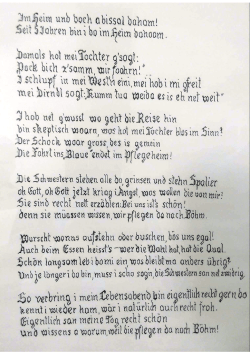 Im Heim und doch a bissal daham!
Seit 5 Jahren bin i do im Heim dahoam.
Damals hot mei Tochter g'sagt:
"Pack dich z'samm, wir foahrn!"
I schlupf in mei Westh eini, mei hob i mi gfreit
mei Dirndl sagt: "Kumm tua weida es is eh net weit"
I hob net g'wusst wo geht die Reise hin
bin skeptisch woarn, was hot mei Tochter blos im Sinn!
Der Schock woar gross, des is gemein
Die Fahrt ins Blaue endet im Pflegeheim!
Die Schwestern stehen alle do, grinsen und stehn Spalier
oh Gott, oh Gott jetzt krieg i Angst was wollen die von mir!
Sie sind recht nett erzählen: Bei uns is's schön!
denn sie müassen wissen, wir pflegen da noch Böhm.
Wurscht wonns aufstehn oder duschen, bös uns egal!
Auch beim Essen heisst's - wer die Wahl hot, hot die Qual.
Schön langsam leb i domi ein was bleibt ma anders übrig?
Und je länger i do bin, muss i scho sogn die Schwestern san net zwidrig.
So verbring i mein Lebensabend bin eigentlich recht gern do
kennt i wieder ham, wär i natürlich auch recht froh.
Eigentlich san meine Tog recht schön
und wissens a warum, weil die pflegen do noch Böhm!